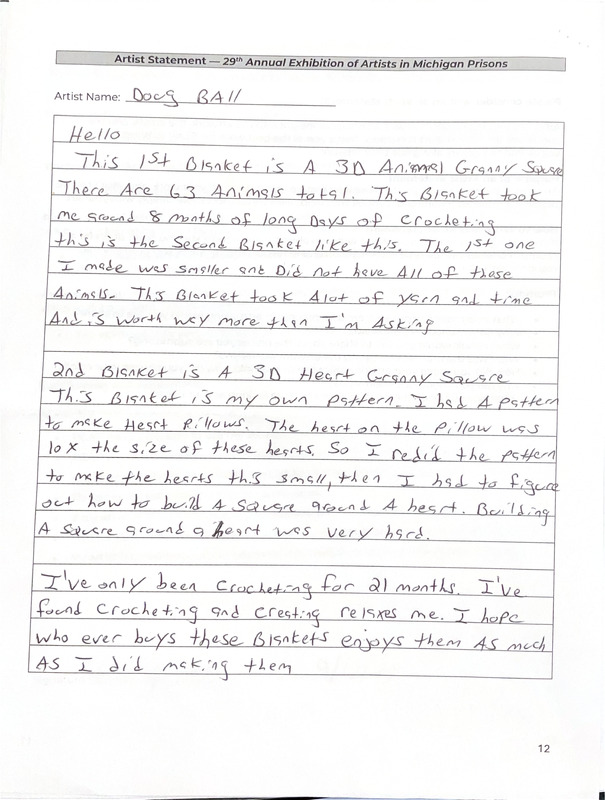 Artist Statement — 29th Annual Exhibition of Artists in Michigan Prisons
Artist Name: Doug BAll
Hello
This 1st Blanket is A 3D Animal Granny Square
There Are 63 Animals total. This Blanket took
me around 8 months of long Days of Crocheting
this is the Second Blanket like this. The 1st one
I made was smaller and Did not have All of these
Animals. This Blanket took Alot of yarn and time
And is worth way more than I'm Asking
2nd Blanket is A 3D Heart Granny Square
This Blanket is my own pattern. I had A pattern
to make Heart Pillows. The heart on the Pillow was
10x the size of these hearts. So I redid the pattern
to make the hearts this small, then I had to figure
out how to build A Square around A heart. Building
A Square around a heart was very hard.
I've only been Crocheting for 21 months. I've
found Crocheting and Creating relaxes me. I hope
who ever buys these Blankets enjoys them As much
AS I did making them
12